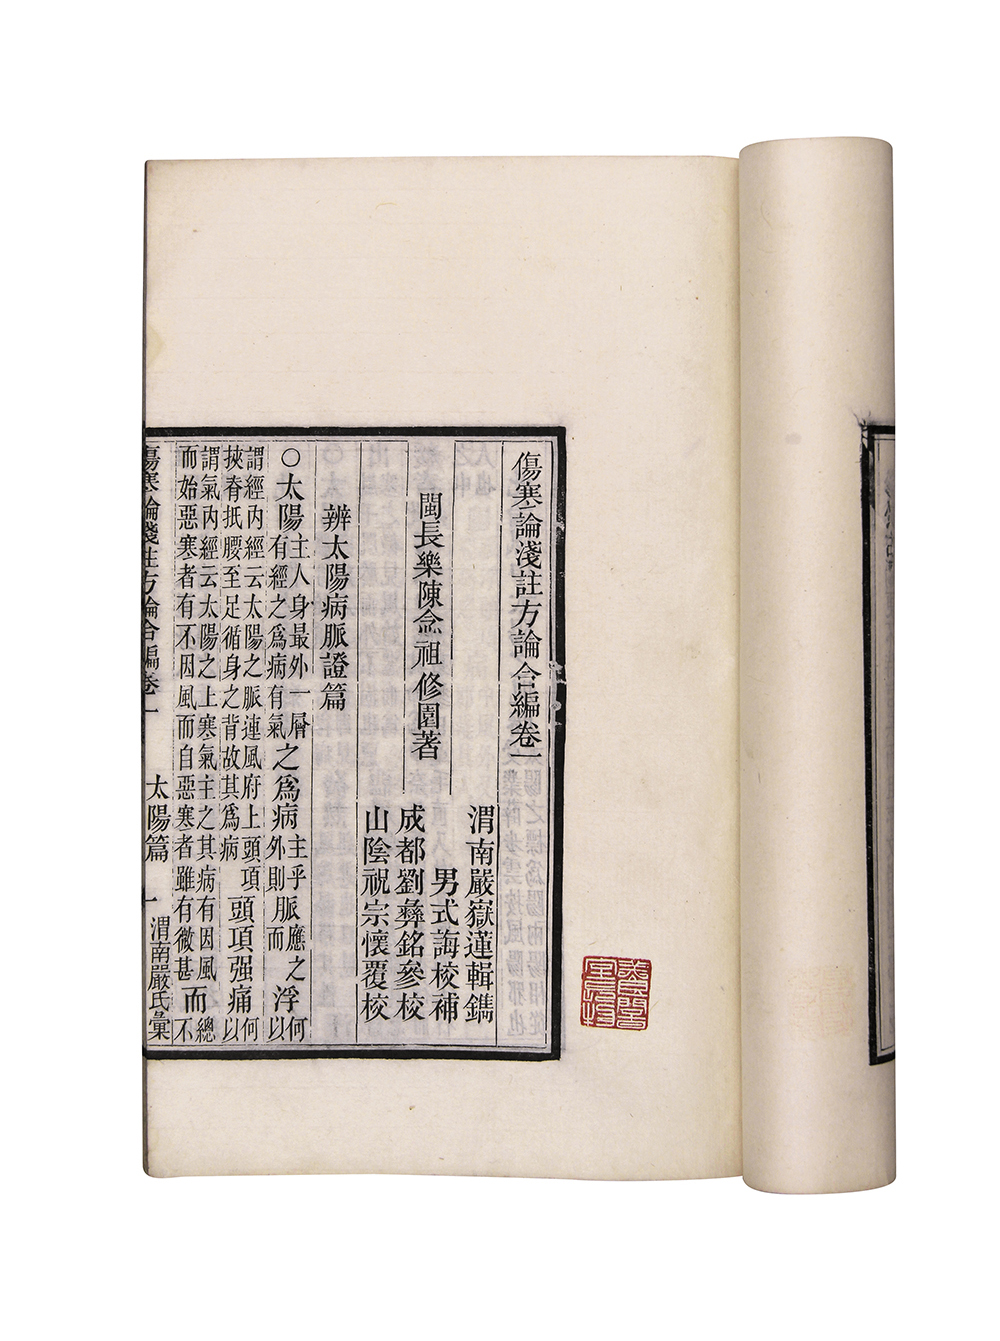 傷寒論淺註方論合編卷一
渭南嚴嶽蓮輯鐫
男式誨校補
閩長樂陳念祖修園著
成都劉彝銘參校
山陰祝宗懷覆校
辨太陽病脈證篇
○太陽主人身最外一層有經之爲病有氣之爲病主乎外則脈應之而浮何以
謂經內經云太陽之脈連風府上頭項挾脊抵腰至足循身之背故其爲病頭項强痛何以
謂氣內經云太陽之上寒氣主之其病有因風而始惡寒者有不因風而自惡寒者雖有微甚而總不
傷寒論淺註方論合編卷一
太陽篇
一
渭南嚴氏彙